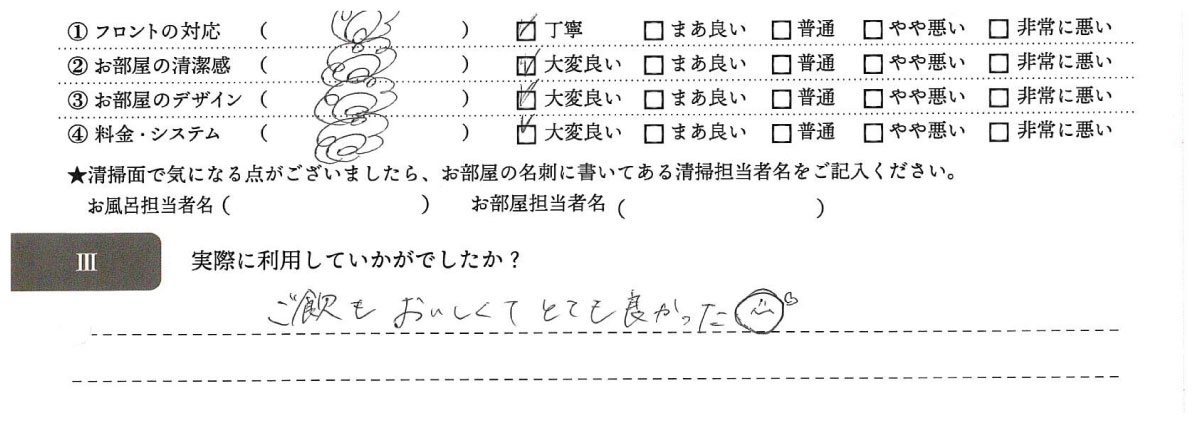 ① フロントの対応 ( ) ☑ 丁寧 □ まあ良い □ 普通 □ やや悪い □ 非常に悪い
② お部屋の清潔感 ( ) ☑ 大変良い □ まあ良い □ 普通 □ やや悪い □ 非常に悪い
③ お部屋のデザイン ( ) ☑ 大変良い □ まあ良い □ 普通 □ やや悪い □ 非常に悪い
④ 料金・システム ( ) ☑ 大変良い □ まあ良い □ 普通 □ やや悪い □ 非常に悪い
★清掃面で気になる点がございましたら、お部屋の名刺に書いてある清掃担当者名をご記入ください。
お風呂担当者名 ( ) お部屋担当者名 ( )
Ⅲ 実際に利用していかがでしたか？
ご飲も おいしくて とても良かった